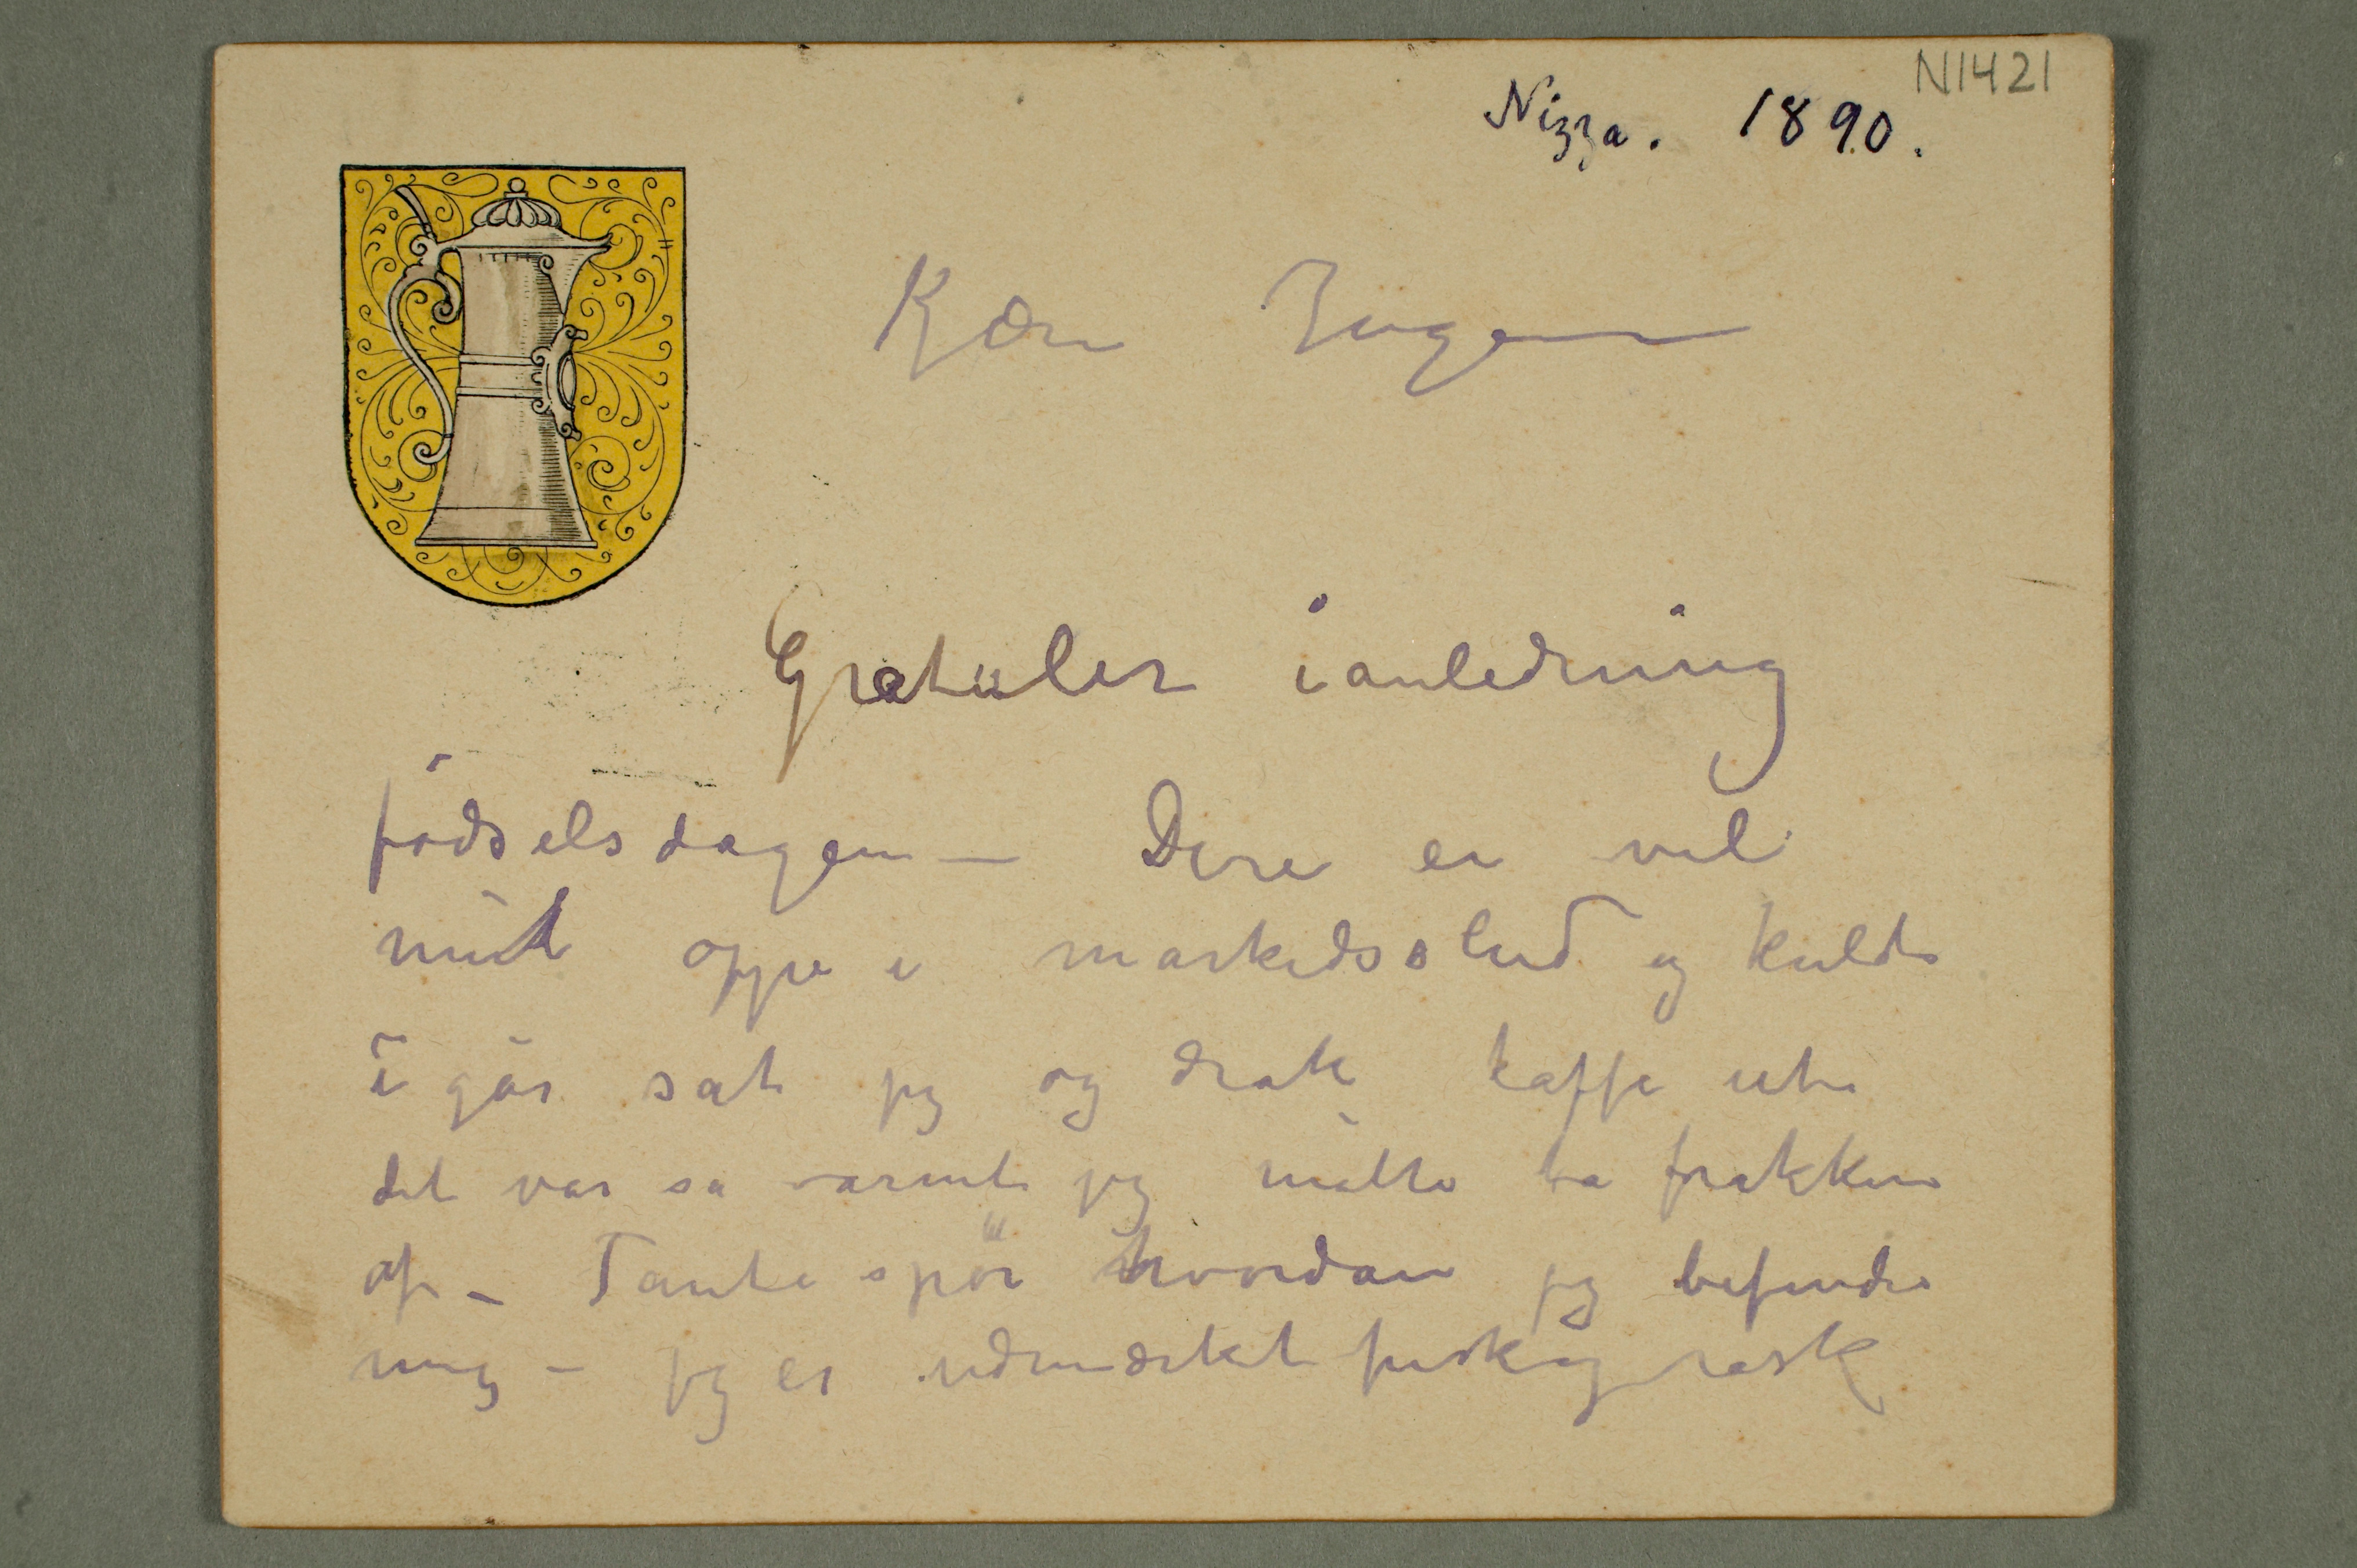 N1421
Nizza. 1890.
Kjære Inger
Gratulerer i anledning
fødselsdagen — Dere er vel
midt oppe i markedsslud og kulde
i går sat jeg og drak kaffe ute
det var så varmt jeg måtte ta frakken
af — Tante spör hvordan jeg befinder
mig — jeg er udmærket frisk og rask